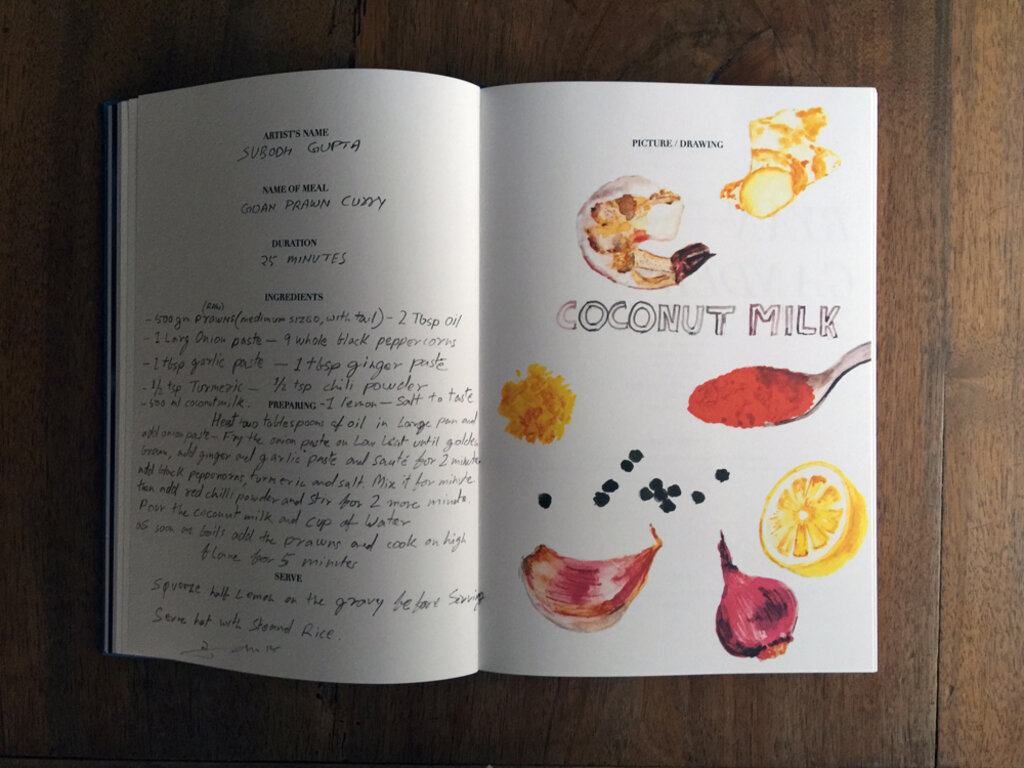 ARTIST'S NAME
SUBODH GUPTA
NAME OF MEAL
GOAN PRAWN CURRY
DURATION
25 MINUTES
INGREDIENTS
(RAW)
- 500 gn PRAWNS (medimum SIZED, with tail) - 2 Tbsp oil
- 1 Larg Onion paste - 9 whole black peppercorns
- 1 tbsp garlic paste - 1 tbsp ginger paste
- 1/2 tsp Turmeric - 1/2 tsp chili powder
- 500 ml coconutmilk. PREPARING - 1 lemon - Salt to taste
Heat two tablespoons of oil in Large pan and
add onion paste - Fry the onion paste on Low heat until golden
brown, add ginger and garlic paste and sauté for 2 minutes
add black peppercorns, turmeric and salt. Mix it for minute
then add red chilli powder and stir for 2 more minute.
Pour the coconut milk and cup of water
as soon as boils add the prawns and cook on high
flame for 5 minutes
SERVE
Squeeze half Lemon on the gravy before Serving
Serve hot with Steamd Rice.
PICTURE / DRAWING
COCONUT MILK